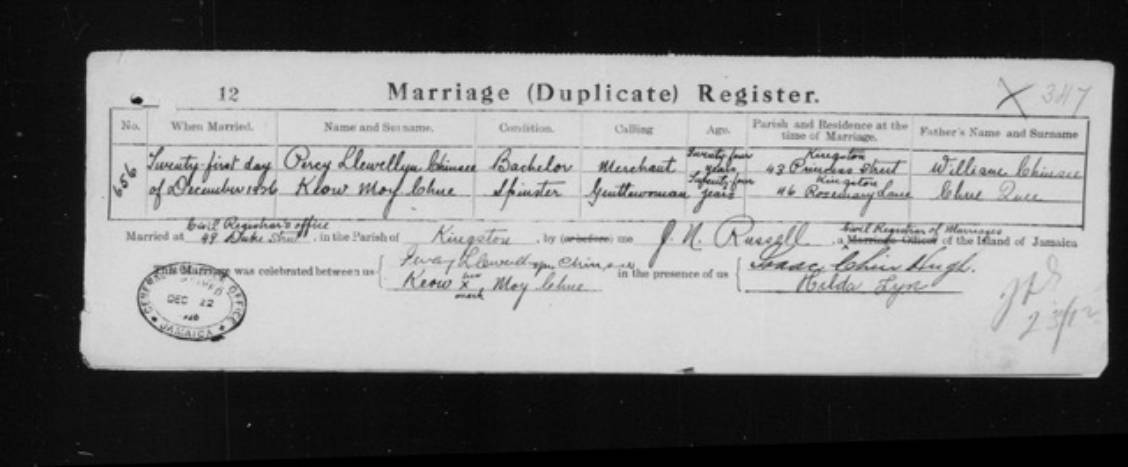 12 Marriage (Duplicate) Register. X 347
No. When Married. Name and Surname. Condition. Calling Age. Parish and Residence at the time of Marriage. Father's Name and Surname
656 Twenty-first day Percy Llewellyn Chinsee Bachelor Merchant Twenty four years Kingston 43 Princess Street William Chinsee
of December 1926 Keow Moy Chue Spinster Gentlewoman Twenty four years Kingston 46 Rosemary Lane Chue
Civil Registrar's office Civil Registrar of Marriages
Married at 49 Duke Street, in the Parish of Kingston, by (or before) me J. N. Russell a Marriage Officer of the Island of Jamaica
This Marriage was celebrated between us Percy Llewellyn Chinsee in the presence of us Isaac Chin Hugh.
Keow her x mark Moy Chue Hilda Lyn
GENERAL OFFICE
DEC 22
JAMAICA